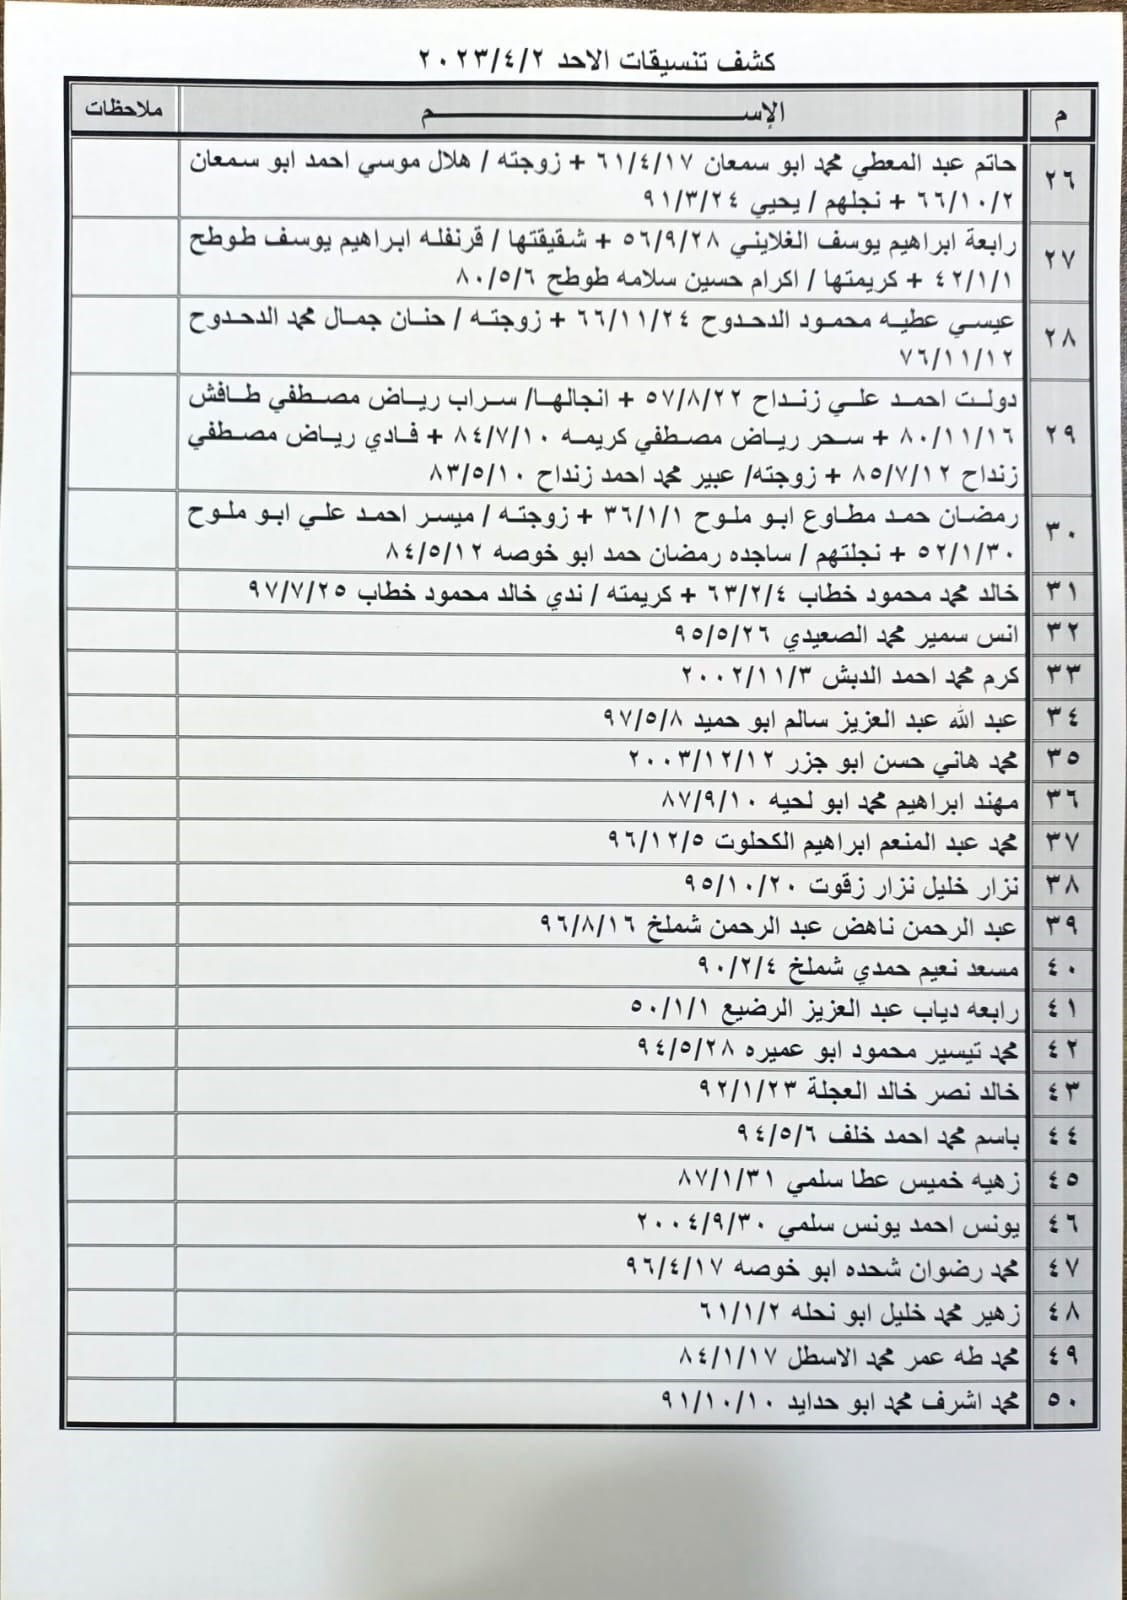 كشف تنسيقات الاحد ٢٠٢٣/٤/٢
م الإســـــــــــــــــــــــــم ملاحظات
٢٦ حاتم عبد المعطي محمد ابو سمعان ٦١/٤/١٧ + زوجته / هلال موسي احمد ابو سمعان
٦٦/١٠/٢ + نجلهم / يحيي ٩١/٣/٢٤
٢٧ رابعة ابراهيم يوسف الغلاييني ٥٦/٩/٢٨ + شقيقتها / قرنفله ابراهيم يوسف طوطح
٤٢/١/١ + كريمتها / اكرام حسين سلامه طوطح ٨٠/٥/٦
٢٨ عيسي عطيه محمود الدحدوح ٦٦/١١/٢٤ + زوجته / حنان جمال محمد الدحدوح
٧٦/١١/١٢
٢٩ دولت احمد علي زنداح ٥٧/٨/٢٢ + انجالها/ سراب رياض مصطفي طافش
٨٠/١١/١٦ + سحر رياض مصطفي كريمه ٨٤/٧/١٠ + فادي رياض مصطفي
زنداح ٨٥/٧/١٢ + زوجته/ عبير محمد احمد زنداح ٨٣/٥/١٠
٣٠ رمضان حمد مطاوع ابو ملوح ٣٦/١/١ + زوجته / ميسر احمد علي ابو ملوح
٥٢/١/٣٠ + نجلتهم / ساجده رمضان حمد ابو خوصه ٨٤/٥/١٢
٣١ خالد محمد محمود خطاب ٦٣/٢/٤ + كريمته / ندي خالد محمود خطاب ٩٧/٧/٢٥
٣٢ انس سمير محمد الصعيدي ٩٥/٥/٢٦
٣٣ كرم محمد احمد الدبش ٢٠٠٢/١١/٣
٣٤ عبد الله عبد العزيز سالم ابو حميد ٩٧/٥/٨
٣٥ محمد هاني حسن ابو جزر ٢٠٠٣/١٢/١٢
٣٦ مهند ابراهيم محمد ابو لحيه ٨٧/٩/١٠
٣٧ محمد عبد المنعم ابراهيم الكحلوت ٩٦/١٢/٥
٣٨ نزار خليل نزار زقوت ٩٥/١٠/٢٠
٣٩ عبد الرحمن ناهض عبد الرحمن شملخ ٩٦/٨/١٦
٤٠ مسعد نعيم حمدي شملخ ٩٠/٢/٤
٤١ رابعه دياب عبد العزيز الرضيع ٥٠/١/١
٤٢ محمد تيسير محمود ابو عميره ٩٤/٥/٢٨
٤٣ خالد نصر خالد العجلة ٩٢/١/٢٣
٤٤ باسم محمد احمد خلف ٩٤/٥/٦
٤٥ زهيه خميس عطا سلمي ٨٧/١/٣١
٤٦ يونس احمد يونس سلمي ٢٠٠٤/٩/٣٠
٤٧ محمد رضوان شحده ابو خوصه ٩٦/٤/١٧
٤٨ زهير محمد خليل ابو نحله ٦١/١/٢
٤٩ محمد طه عمر محمد الاسطل ٨٤/١/١٧
٥٠ محمد اشرف محمد ابو حدايد ٩١/١٠/١٠